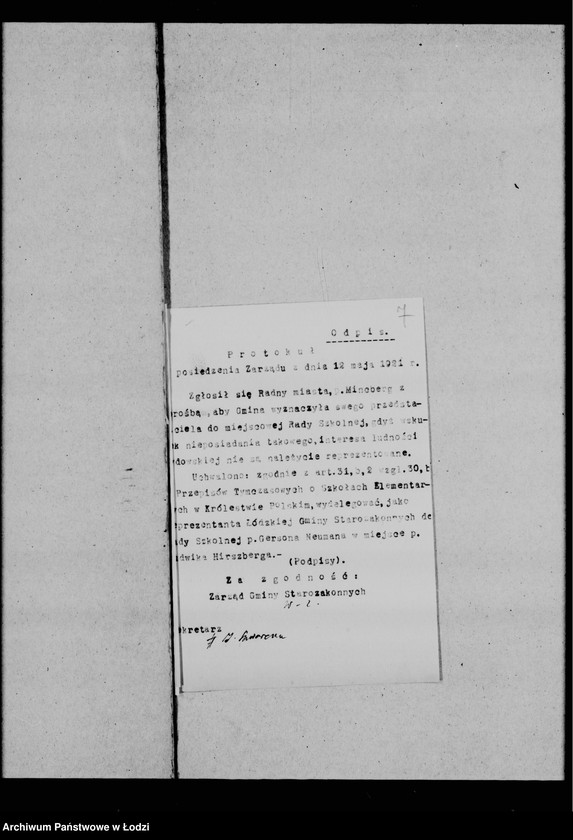 7
Odpis.
Protokuł
posiedzenia Zarządu z dnia 12 maja 1921 r.
Zgłosił się Radny miasta, p.Mincberg z
rośbą, aby Gmina wyznaczyła swego przedsta-
ciela do miejscowej Rady Szkolnej, gdyż wsku-
k nieposiadania takowego, interesa ludności
dowskiej nie są należycie reprezentowane.
Uchwalono: zgodnie z art.31, 2 wzgl.30,
Przepisów Tymczasowych o Szkołach Elementar-
ch w Królestwie Polskim, wydelegować, jako
prezentanta Łódzkiej Gminy Starozakonnych do
dy Szkolnej p.Gersona Neumana w miejsce p.
dwika Hirszberga.-
(Podpisy).
Za zgodność:
Zarząd Gminy Starozakonnych
kretarz
Archiwum Państwowe w Łodzi